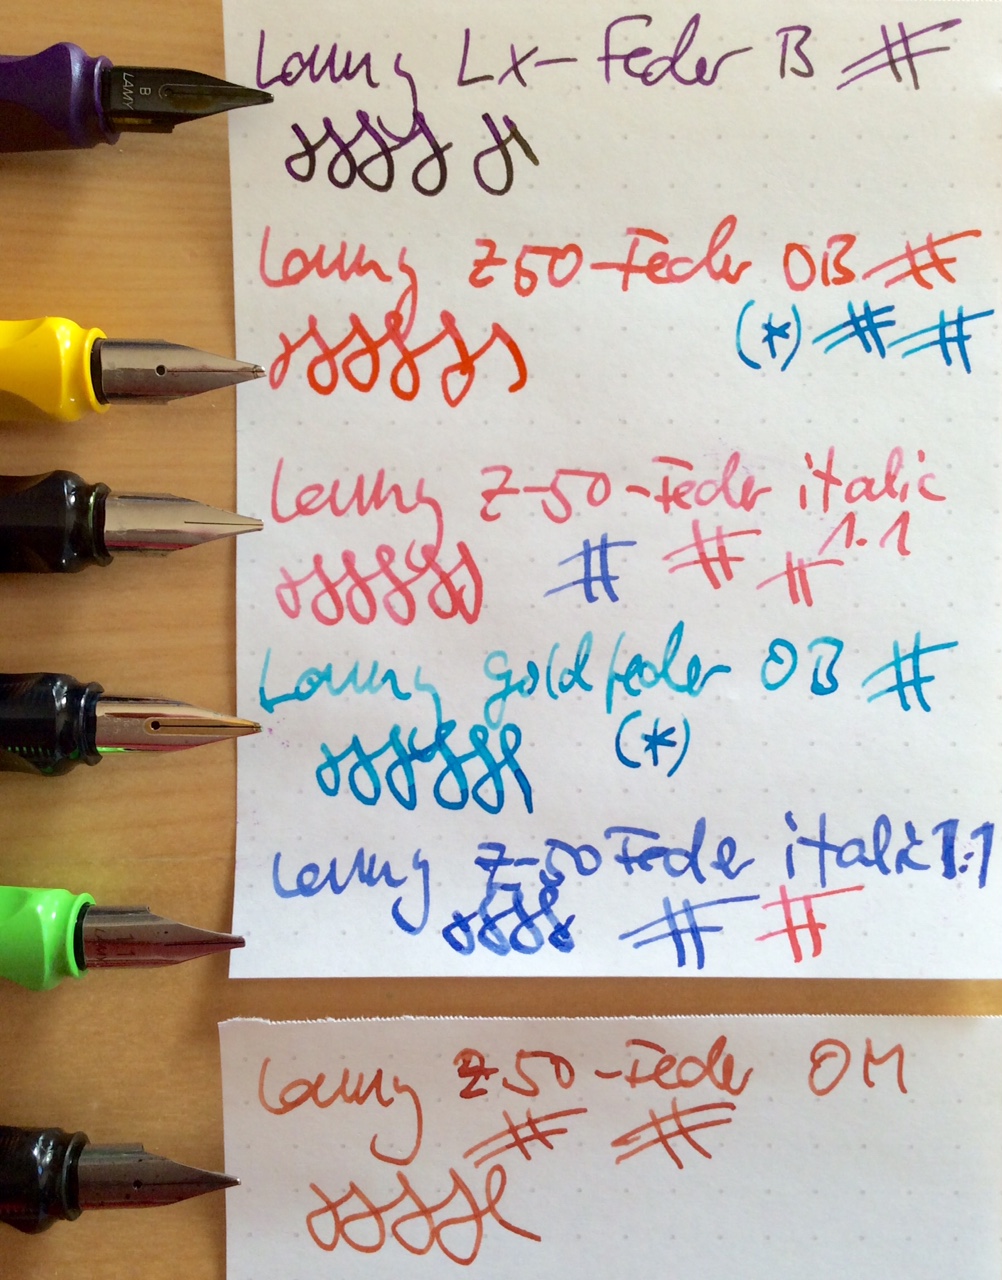 B
LAMY
Lamy Lx-Feder B #
Lamy Z50-Feder OB #
(*) # #
Lamy Z-50-Feder italic
1.1
# # #
Lamy Goldfeder OB #
(*)
Lamy Z-50 Feder italic 1.1
# #
Lamy Z50-Feder OM
# #